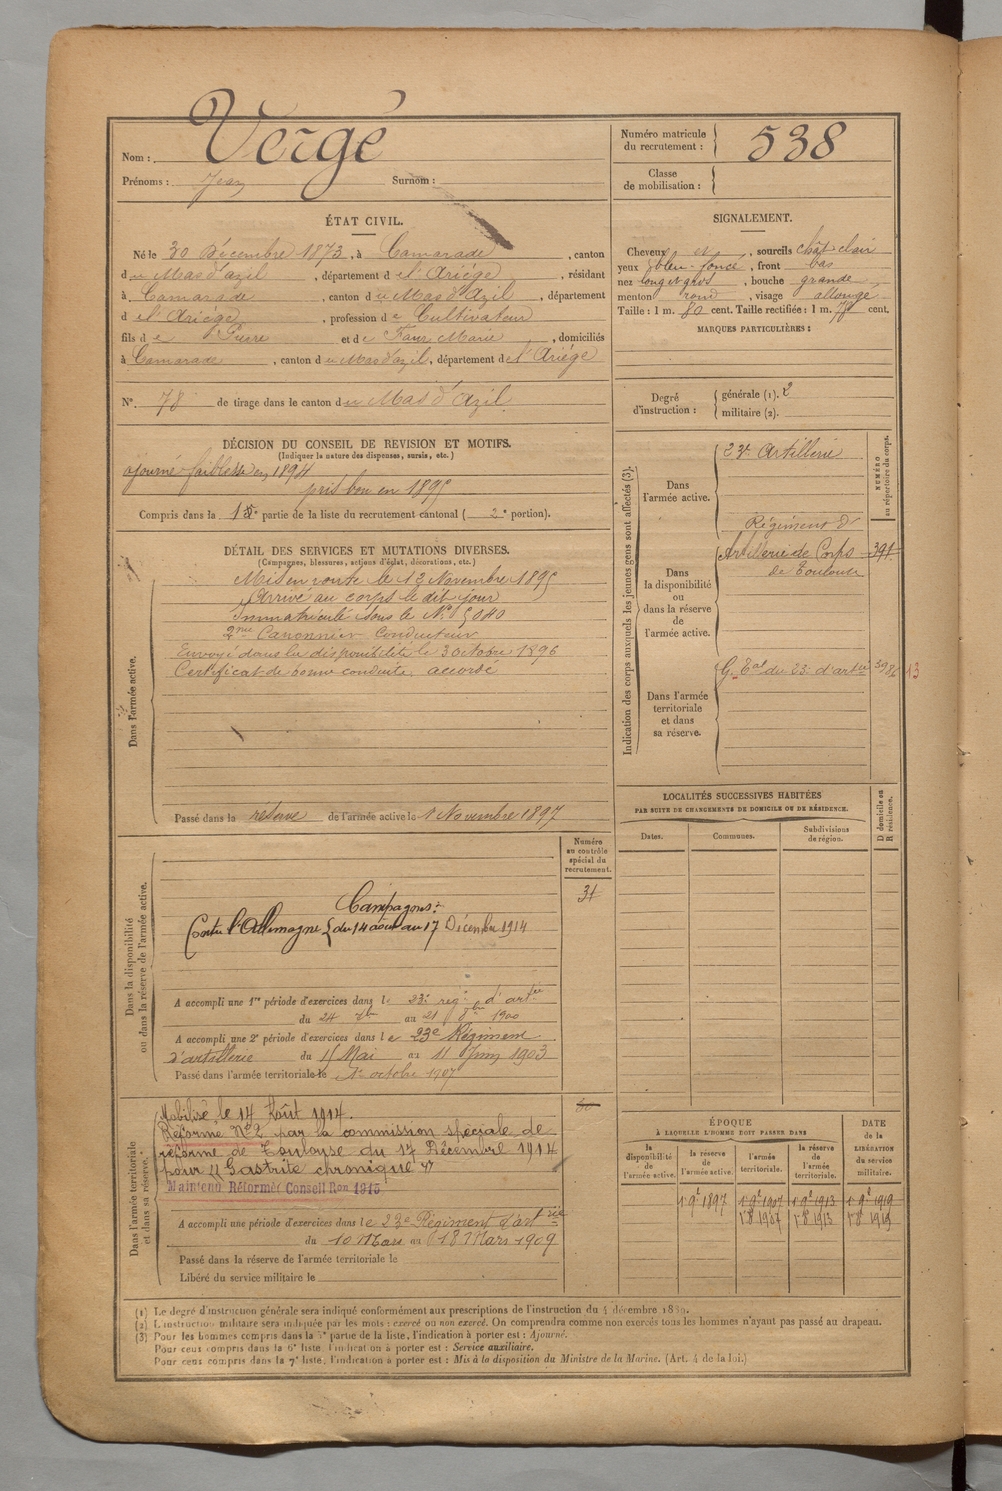 Nom : Vergé
Prénoms : Jean Surnom :
Numéro matricule du recrutement : 538
Classe de mobilisation :
ÉTAT CIVIL.
Né le 30 Décembre 1873, à Camarade, canton
du Mas d'azil, département de l'Ariége, résidant
à Camarade, canton du Mas d'Azil, département
de l'Ariége, profession de Cultivateur
fils de Pierre et de Faur Marie, domiciliés
à Camarade, canton du Mas d'azil, département de l'Ariége
N° 78 de tirage dans le canton du Mas d'Azil
SIGNALEMENT.
Cheveux, sourcils chât clair
yeux bleu-foncé, front bas
nez long et gros, bouche grande
menton rond, visage allongé
Taille : 1 m. 80 cent. Taille rectifiée : 1 m. 78 cent.
MARQUES PARTICULIÈRES :
Degré d'instruction : générale (1). 2
militaire (2).
DÉCISION DU CONSEIL DE REVISION ET MOTIFS.
(Indiquer la nature des dispenses, sursis, etc.)
ajourné faiblesse en 1894
pris bon en 1895
Compris dans la partie de la liste du recrutement cantonal (2e portion).
DÉTAIL DES SERVICES ET MUTATIONS DIVERSES.
(Campagnes, blessures, actions d'éclat, décorations, etc.)
Dans l'armée active.
Mis en route le 13 Novembre 1895
Arrivé au corps le dit jour
Immatriculé sous le N° 5040
2me Canonnier Conducteur
Envoyé dans la disponibilité le 3 octobre 1896
Certificat de bonne conduite accordé
Passé dans la reserve de l'armée active le 1 Novembre 1897
Indication des corps auxquels les jeunes gens sont affectés (3).
NUMÉRO au répertoire du corps.
Dans l'armée active.
23e Artillerie
Dans la disponibilité ou dans la réserve de l'armée active.
Régiment d'
Artillerie de Corps 391
de Toulouse
Dans l'armée territoriale et dans sa réserve.
G. Tal du 23e d'artie
LOCALITÉS SUCCESSIVES HABITÉES
PAR SUITE DE CHANGEMENTS DE DOMICILE OU DE RÉSIDENCE.
Dates. Communes. Subdivisions de région. D domicile ou R résidence.
Dans la disponibilité ou dans la réserve de l'armée active.
Numéro au contrôle spécial du recrutement.
31
Campagnes :
Contre l'Allemagne { du 14 août au 17 Décembre 1914
A accompli une 1re période d'exercices dans le 23e reg. d'artie
du 24 au 21 1900
A accompli une 2e période d'exercices dans le 23e Régiment
d'artillerie du 15 Mai au 11 Juin 1903
Passé dans l'armée territoriale le 1er octobre 1907
Dans l'armée territoriale et dans sa réserve.
Mobilisé le 14 Août 1914.
Réformé N° 2 par la commission spéciale de
réforme de Toulouse du 17 Décembre 1914
pour "Gastrite chronique"
Maintenu Réformé Conseil Ron 1915
A accompli une période d'exercices dans le 23e Régiment d'artrie
du 10 Mars au 18 Mars 1909
Passé dans la réserve de l'armée territoriale le
Libéré du service militaire le
ÉPOQUE
À LAQUELLE L'HOMME DOIT PASSER DANS
DATE de la LIBÉRATION du service militaire.
la disponibilité de l'armée active.
la réserve de l'armée active.
l'armée territoriale.
la réserve de l'armée territoriale.
1 9e 1897 1 9e 1907 1 9e 1913 1 9e 1919
1 8 1907 1 8 1913 1 8 1919
(1) Le degré d'instruction générale sera indiqué conformément aux prescriptions de l'instruction du 4 décembre 1889.
(2) L'instruction militaire sera indiquée par les mots : exercé ou non exercé. On comprendra comme non exercés tous les hommes n'ayant pas passé au drapeau.
(3) Pour les hommes compris dans la 5e partie de la liste, l'indication à porter est : Ajourné.
Pour ceux compris dans la 6e liste, l'indication à porter est : Service auxiliaire.
Pour ceux compris dans la 7e liste, l'indication à porter est : Mis à la disposition du Ministre de la Marine. (Art. 4 de la loi.)